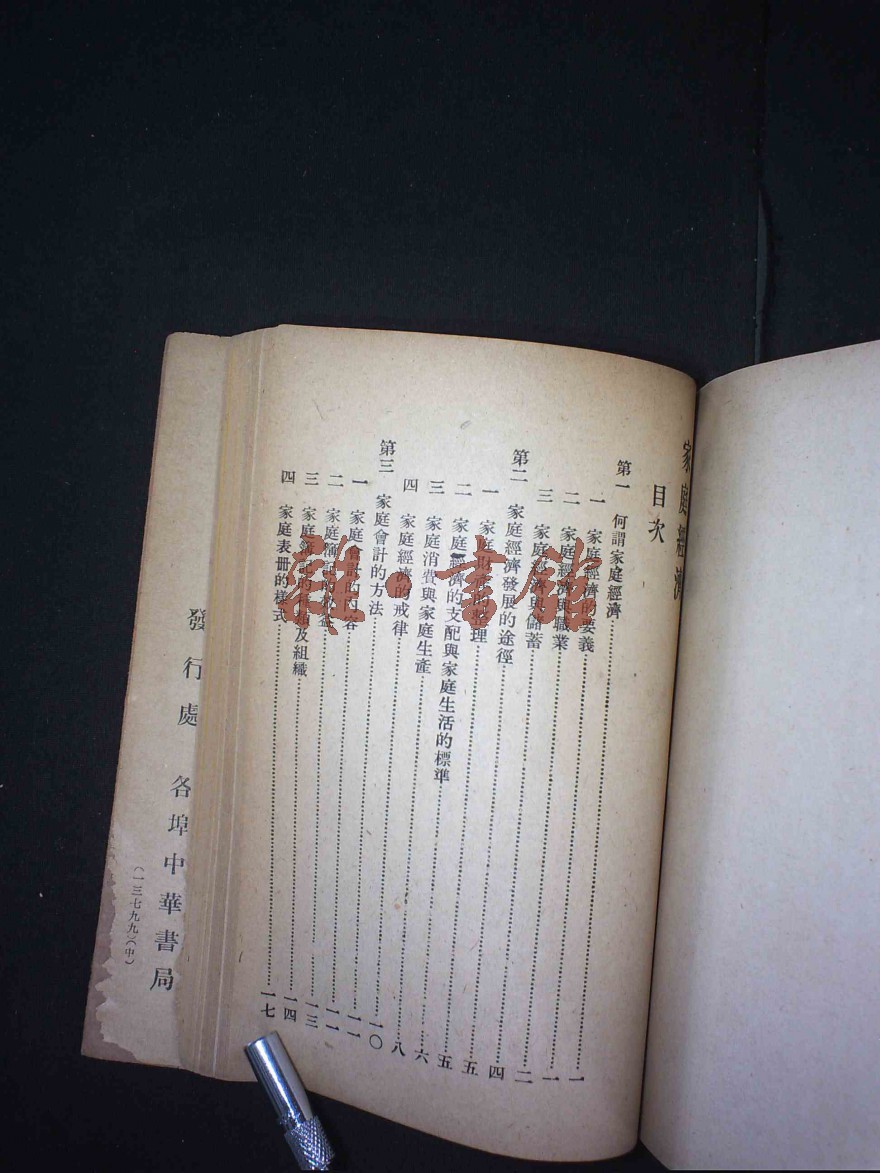 家庭經濟
目次
第一 何謂家庭經濟……一
一 家庭經濟的要義……一
二 家庭經濟與職業……二
三 家庭經濟與儲蓄……四
第二 家庭經濟發展的途徑……五
一 家庭財產的整理……五
二 家庭經濟的支配與家庭生活的標準……六
三 家庭消費與家庭生產……八
四 家庭經濟的戒律……一〇
第三 家庭會計的方法……一一
一 家庭會計的內容……一一
二 家庭簿記的……一三
三 家庭簿記的種類及組織……一四
四 家庭表冊的樣式……一七
發行處 各埠中華書局
(一三七九九)(中)
雜·書館